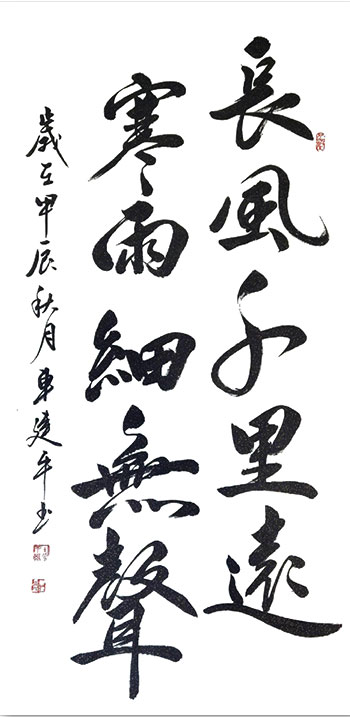 長風千里遠
寒雨細無聲
歲在甲辰秋月車建平書